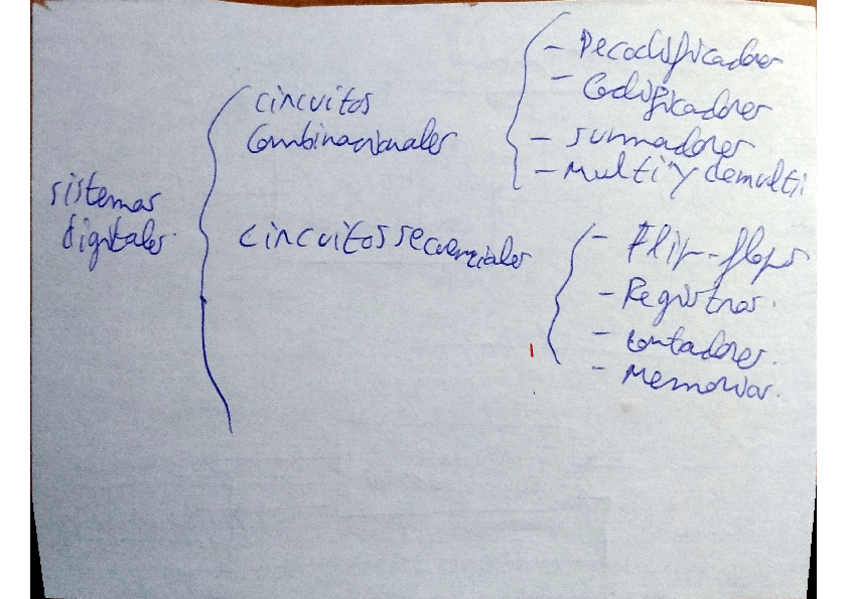 sistemas
digitales.
circuitos
Combinacionales
- Decodificadores
- Codificadores
- sumadores
- Multi y demulti
circuitos secuenciales
- Flip-flops
- Registros.
- contadores.
- Memorias.